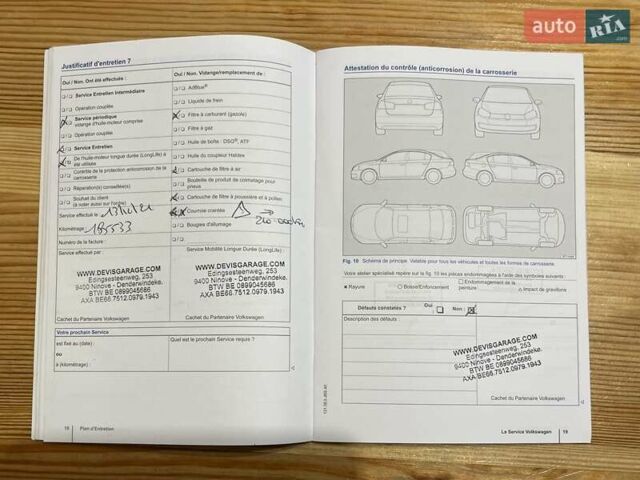 auto RIA.com
Justificatif d'entretien 7
Oui / Non. Ont été effectués :
Service Entretien Intermédiaire
Opération couplée
Service périodique
vidange d'huile-moteur comprise
Opération couplée
Service Entretien
De l'huile-moteur longue durée (LongLife) a été utilisée
Contrôle de la protection anticorrosion de la carrosserie
Réparation(s) conseillée(s)
Souhait du client
(à noter aussi sur l'ordre)
Service effectué le
Kilométrage
Numéro de la facture :
Service effectué par :
WWW.DEVISGARAGE.COM
Edingsesteenweg, 253
9400 Ninove - Denderwindeke.
BTW BE 0899045686
AXA BE66.7512.0979.1943
Cachet du Partenaire Volkswagen
Votre prochain Service
est fixé au (date) :
ou
à (kilométrage) :
18 Plan d'Entretien
Oui / Non. Vidange/remplacement de :
AdBlue®
Liquide de frein
Filtre à carburant (gazole)
Filtre à gaz
Huile de boîte : DSG®, ATF
Huile du coupleur Haldex
Cartouche de filtre à air
Bouteille de produit de colmatage pour pneus
Cartouche de filtre à poussière et à pollen
Courroie crantée
Bougies d'allumage
Service Mobilité Longue Durée (LongLife) :
WWW.DEVISGARAGE.COM
Edingsesteenweg, 253
9400 Ninove - Denderwindeke.
BTW BE 0899045686
AXA BE66.7512.0979.1943
Cachet du Partenaire Volkswagen
Quel est le prochain Service requis ?
Attestation du contrôle (anticorrosion) de la carrosserie
Fig. 10 Schéma de principe. Valable pour tous les véhicules et toutes les formes de carrosserie.
Votre atelier spécialisé repère sur la fig. 10 les pièces endommagées à l'aide des symboles suivants :
Rayure
Bosse/Enfoncement
Endommagement de la peinture
Impact de gravillons
Défauts constatés ?
Oui
Non
Description des défauts
WWW.DEVISGARAGE.COM
Edingsesteenweg, 253
9400 Ninove - Denderwindeke.
BTW BE 0899045686
AXA BE66.7512.0979.1943
Cachet du Partenaire Volkswagen
Le Service Volkswagen 19